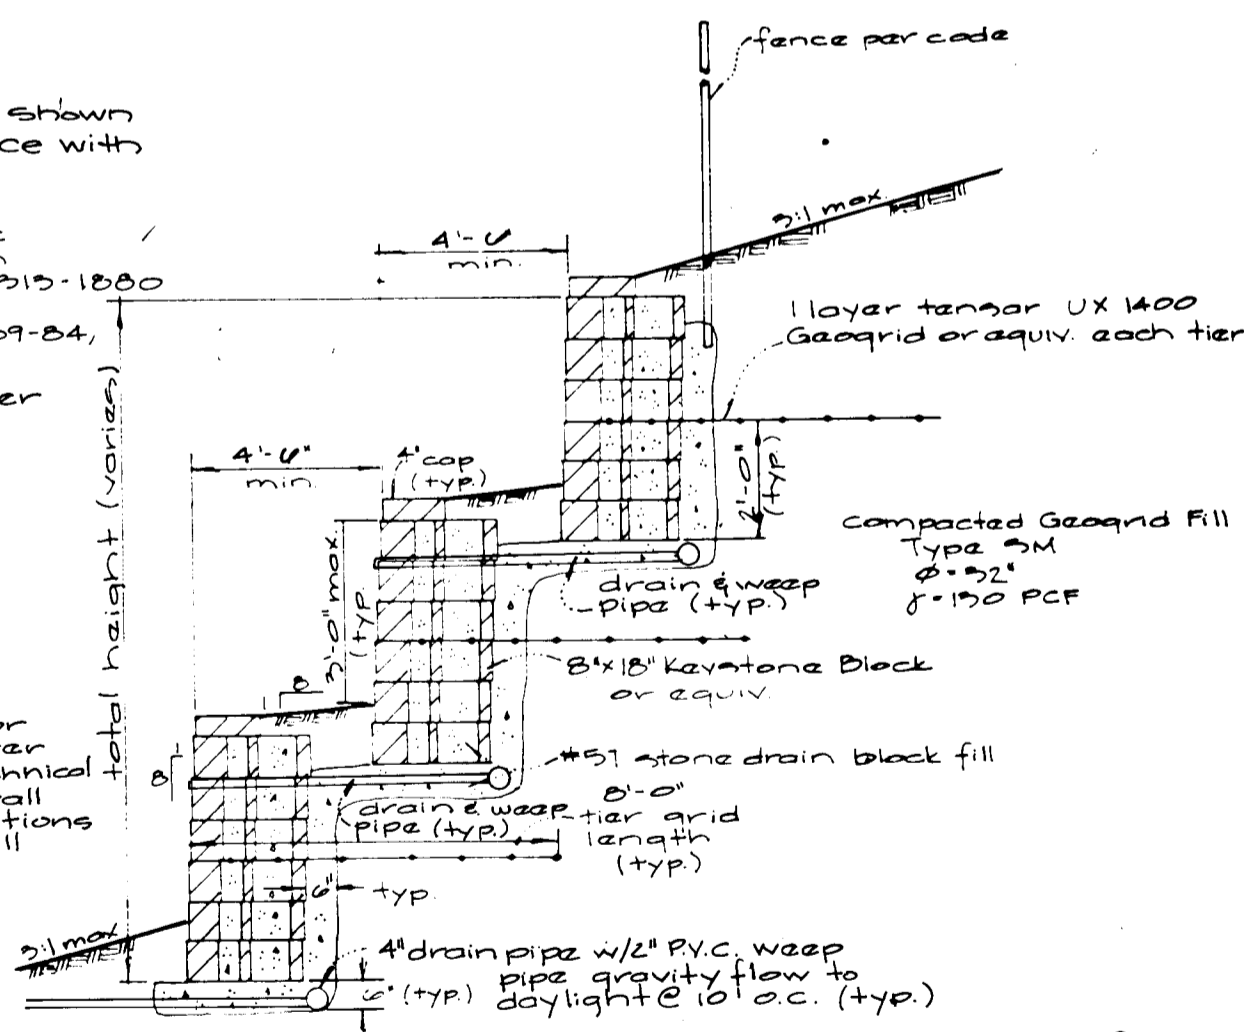 shown
ce with
313-1880
09-84,
er
or
er
hnical
all
tions
ll
fence per code
3:1 max.
4'-6
min.
1 layer tensar UX 1400
Geogrid or equiv. each tier
total height (varies)
4'-6"
min.
4" cap
(typ.)
2'-0"
(typ.)
Compacted Geogrid Fill
Type SM
φ=32°
γ=130 PCF
3'-0" max
(typ.
drain & weep
pipe (typ.)
8"x18" Keystone Block
or equiv.
8
8
#57 stone drain block fill
drain & weep
pipe (typ.)
8'-0"
tier grid
length
(typ.)
6"
typ.
3:1 max
4" drain pipe w/2" P.V.C. weep
pipe gravity flow to
daylight @ 10' o.c. (typ.)
6" (typ.)